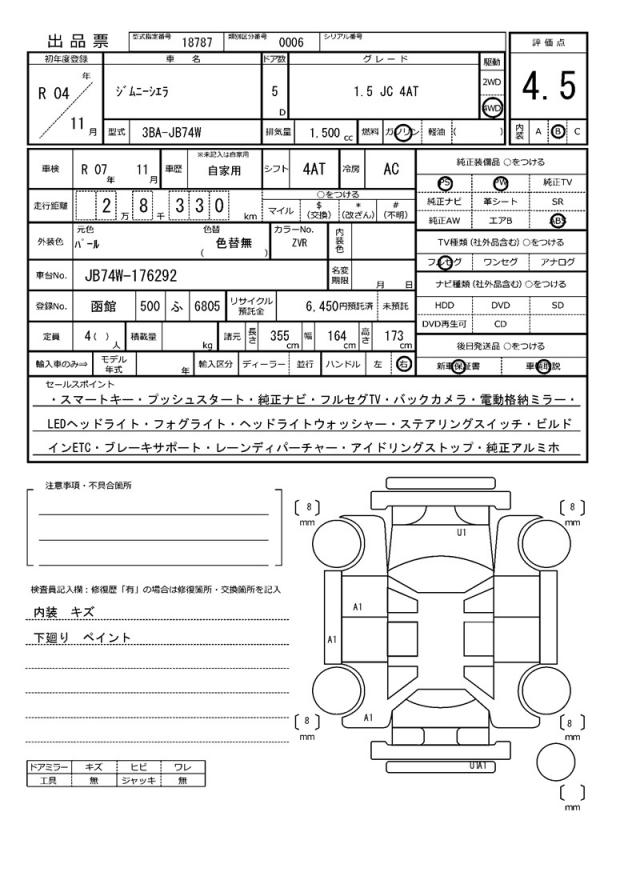 出品票 型式指定番号 18787 類別区分番号 0006 シリアル番号
評価点
4.5
初年度登録 車名 ドア数 グレード 駆動
R 04 年 11 月
ｼﾞﾑﾆｰｼｴﾗ
5 D
1.5 JC 4AT
2WD
4WD
型式 3BA-JB74W 排気量 1.500 cc 燃料 ガソリン 軽油 ( )
内装 A B C
車検 R 07 年 11 月 車歴 ※未記入は自家用 自家用 シフト 4AT 冷房 AC
純正装備品 ○をつける
PS PW 純正TV
走行距離 2 万 8 千 3 3 0 km
○をつける
マイル $(交換) *(改ざん) #(不明)
純正ナビ 革シート SR
純正AW エアB ABS
外装色 元色 ﾊﾟｰﾙ 色替 ( 色替無 ) カラーNo. ZVR 内装色
TV種類 (社外品含む) ○をつける
フルセグ ワンセグ アナログ
車台No. JB74W-176292 名変期限 月 日
ナビ種類 (社外品含む) ○をつける
HDD DVD SD
DVD再生可 CD
登録No. 函館 500 ふ 6805 リサイクル預託金 6,450円預託済 未預託
定員 4( ) 人 積載量 kg 諸元 長さ 355 cm 幅 164 cm 高さ 173 cm
後日発送品 ○をつける
新車保証書 車輌取説
輸入車のみ⇒ モデル年式 年 輸入区分 ディーラー 並行 ハンドル 左 右
セールスポイント
・スマートキー・プッシュスタート・純正ナビ・フルセグTV・バックカメラ・電動格納ミラー・
LEDヘッドライト・フォグライト・ヘッドライトウォッシャー・ステアリングスイッチ・ビルド
インETC・ブレーキサポート・レーンディパーチャー・アイドリングストップ・純正アルミホ
注意事項・不具合箇所
検査員記入欄：修復歴「有」の場合は修復箇所・交換箇所を記入
内装 キズ
下廻り ペイント
ドアミラー キズ ヒビ ワレ
工具 無 ジャッキ 無
8 mm
8 mm
U1
A1
A1
A1
8 mm
8 mm
U1A1
mm